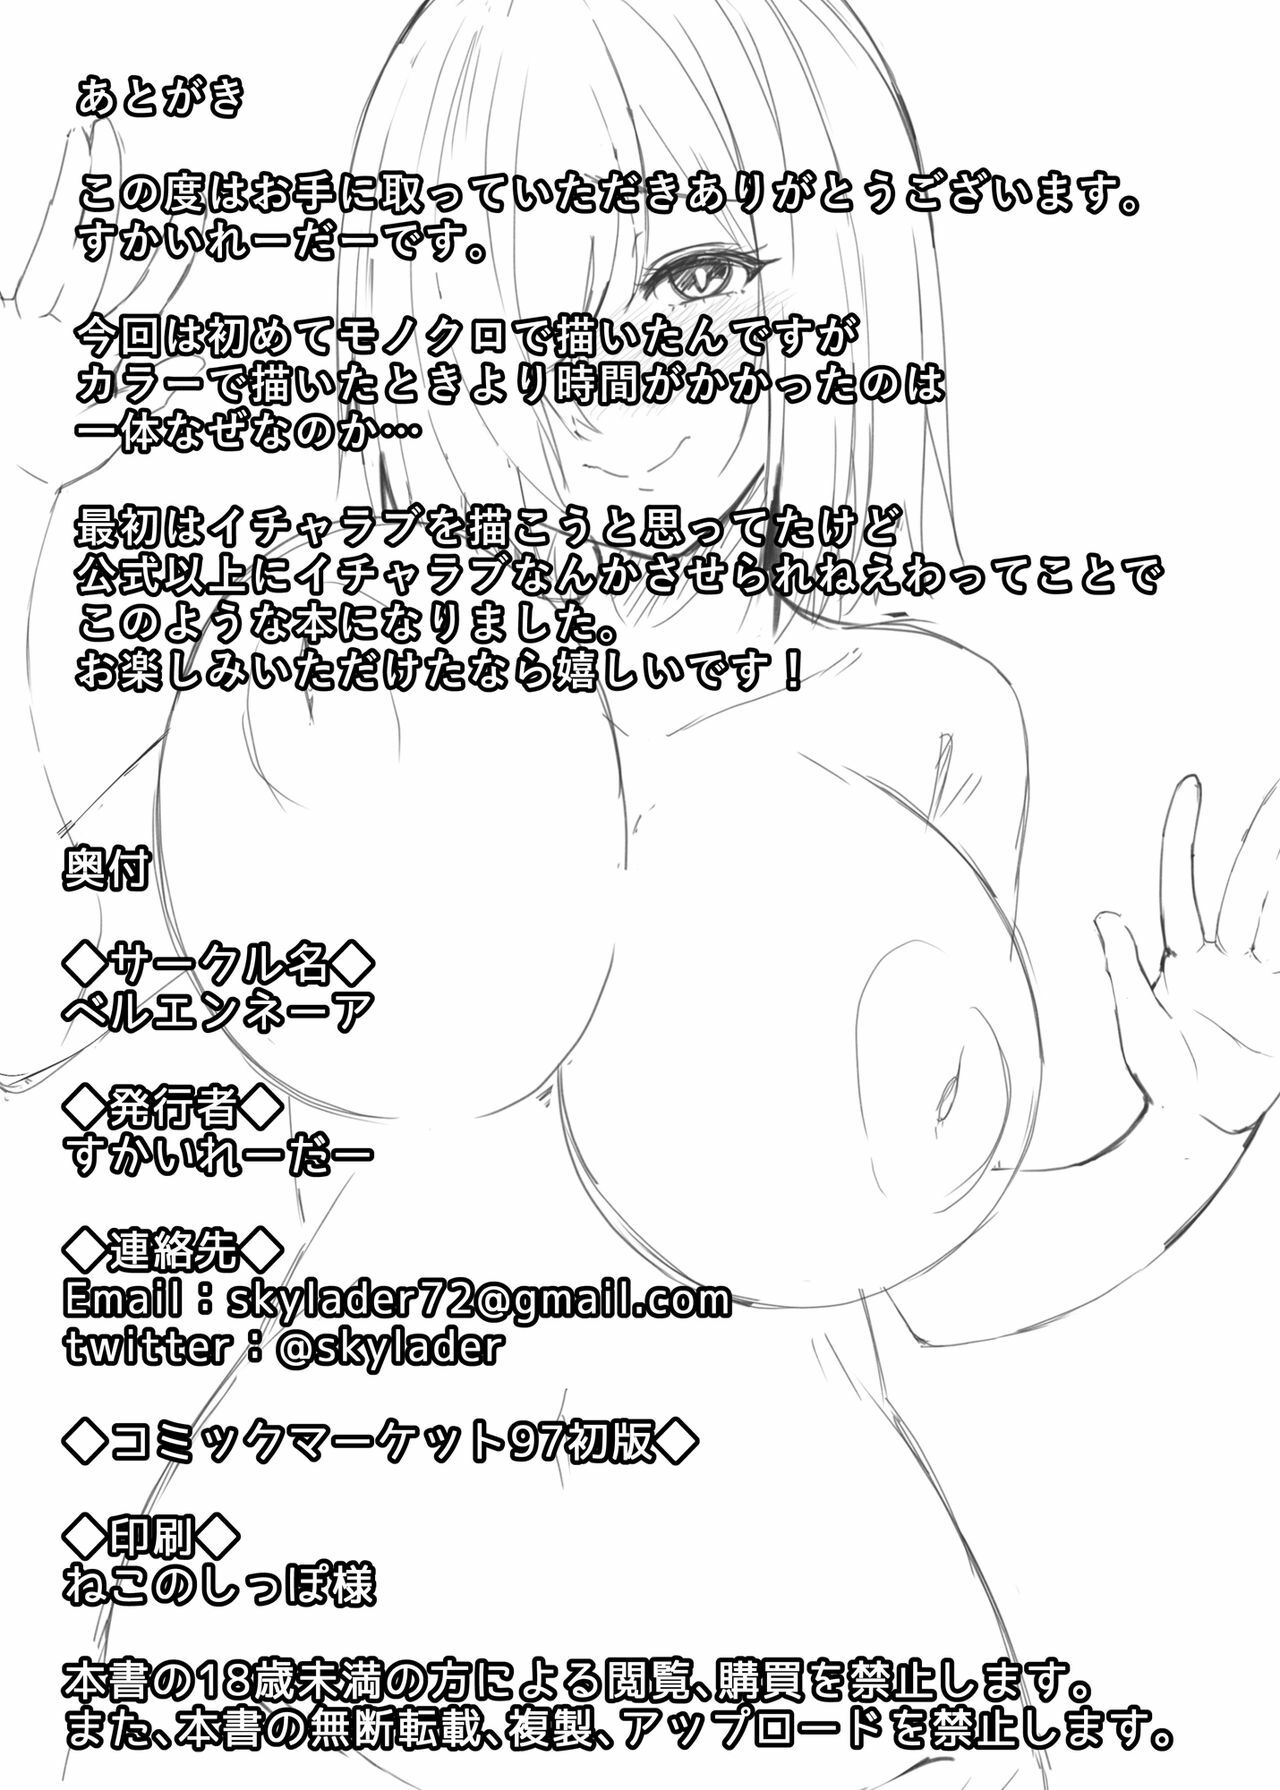 あとがき
この度はお手に取っていただきありがとうございます。
すかいれーだーです。
今回は初めてモノクロで描いたんですが
カラーで描いたときより時間がかかったのは
一体なぜなのか…
最初はイチャラブを描こうと思ってたけど
公式以上にイチャラブなんかさせられねえわってことで
このような本になりました。
お楽しみいただけたなら嬉しいです！
奥付
◇サークル名◇
ベルエンネーア
◇発行者◇
すかいれーだー
◇連絡先◇
Email：skylader72@gmail.com
twitter：@skylader
◇コミックマーケット97初版◇
◇印刷◇
ねこのしっぽ様
本書の18歳未満の方による閲覧、購買を禁止します。
また、本書の無断転載、複製、アップロードを禁止します。